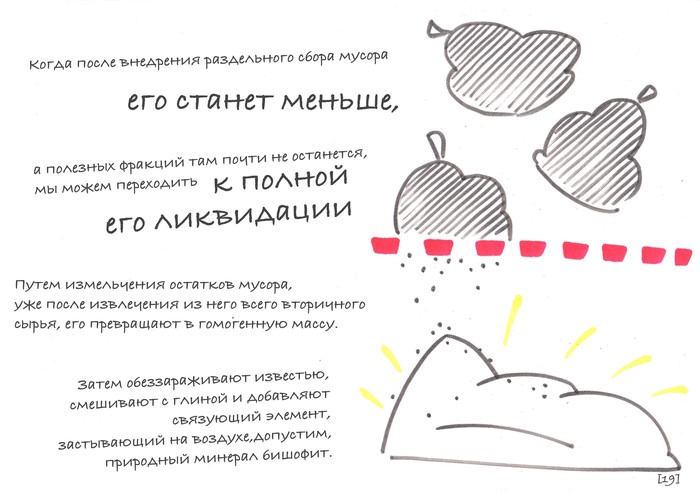 Когда после внедрения раздельного сбора мусора
его станет меньше,
а полезных фракций там почти не останется,
мы можем переходить к полной
его ликвидации
Путем измельчения остатков мусора,
уже после извлечения из него всего вторичного
сырья, его превращают в гомогенную массу.
Затем обеззараживают известью,
смешивают с глиной и добавляют
связующий элемент,
застывающий на воздухе,допустим,
природный минерал бишофит.
[19]